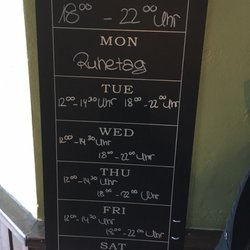 18⁰⁰ - 22⁰⁰ Uhr
MON
Ruhetag
TUE
12⁰⁰ - 14³⁰ Uhr 18⁰⁰ - 22⁰⁰ Uhr
WED
12⁰⁰ - 14³⁰ Uhr
18⁰⁰ - 22⁰⁰ Uhr
THU
12⁰⁰ - 14³⁰ Uhr
18⁰⁰ - 22⁰⁰ Uhr
FRI
12⁰⁰ - 14³⁰ Uhr
18⁰⁰ - 22⁰⁰ Uhr
SAT